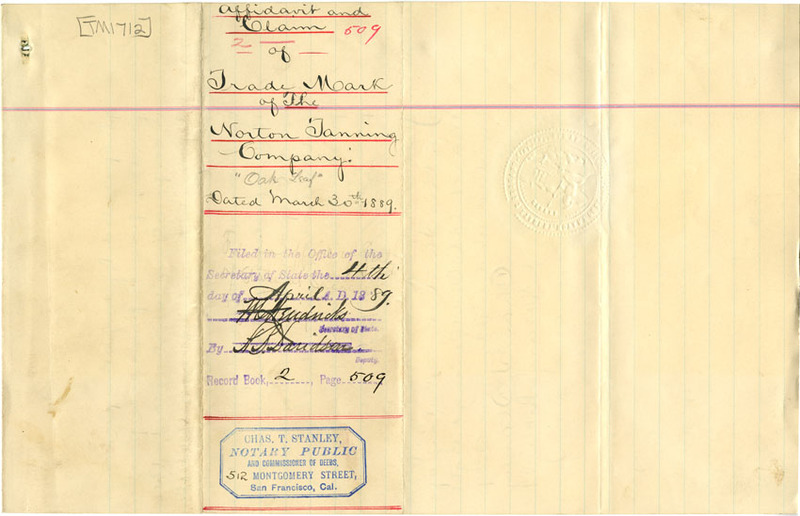 [TM1712]
Affidavit and
Claim 509
2
of
Trade Mark
of The
Norton Tanning
Company.
"Oak Leaf"
Dated March 30th 1889.
Filed in the Office of the
Secretary of State the 4th
day of April A. D. 1889.
W C Hendricks
Secretary of State.
By Davidson
Deputy.
Record Book, 2, Page 509
CHAS. T. STANLEY,
NOTARY PUBLIC
AND COMMISSIONER OF DEEDS,
512 MONTGOMERY STREET,
San Francisco, Cal.